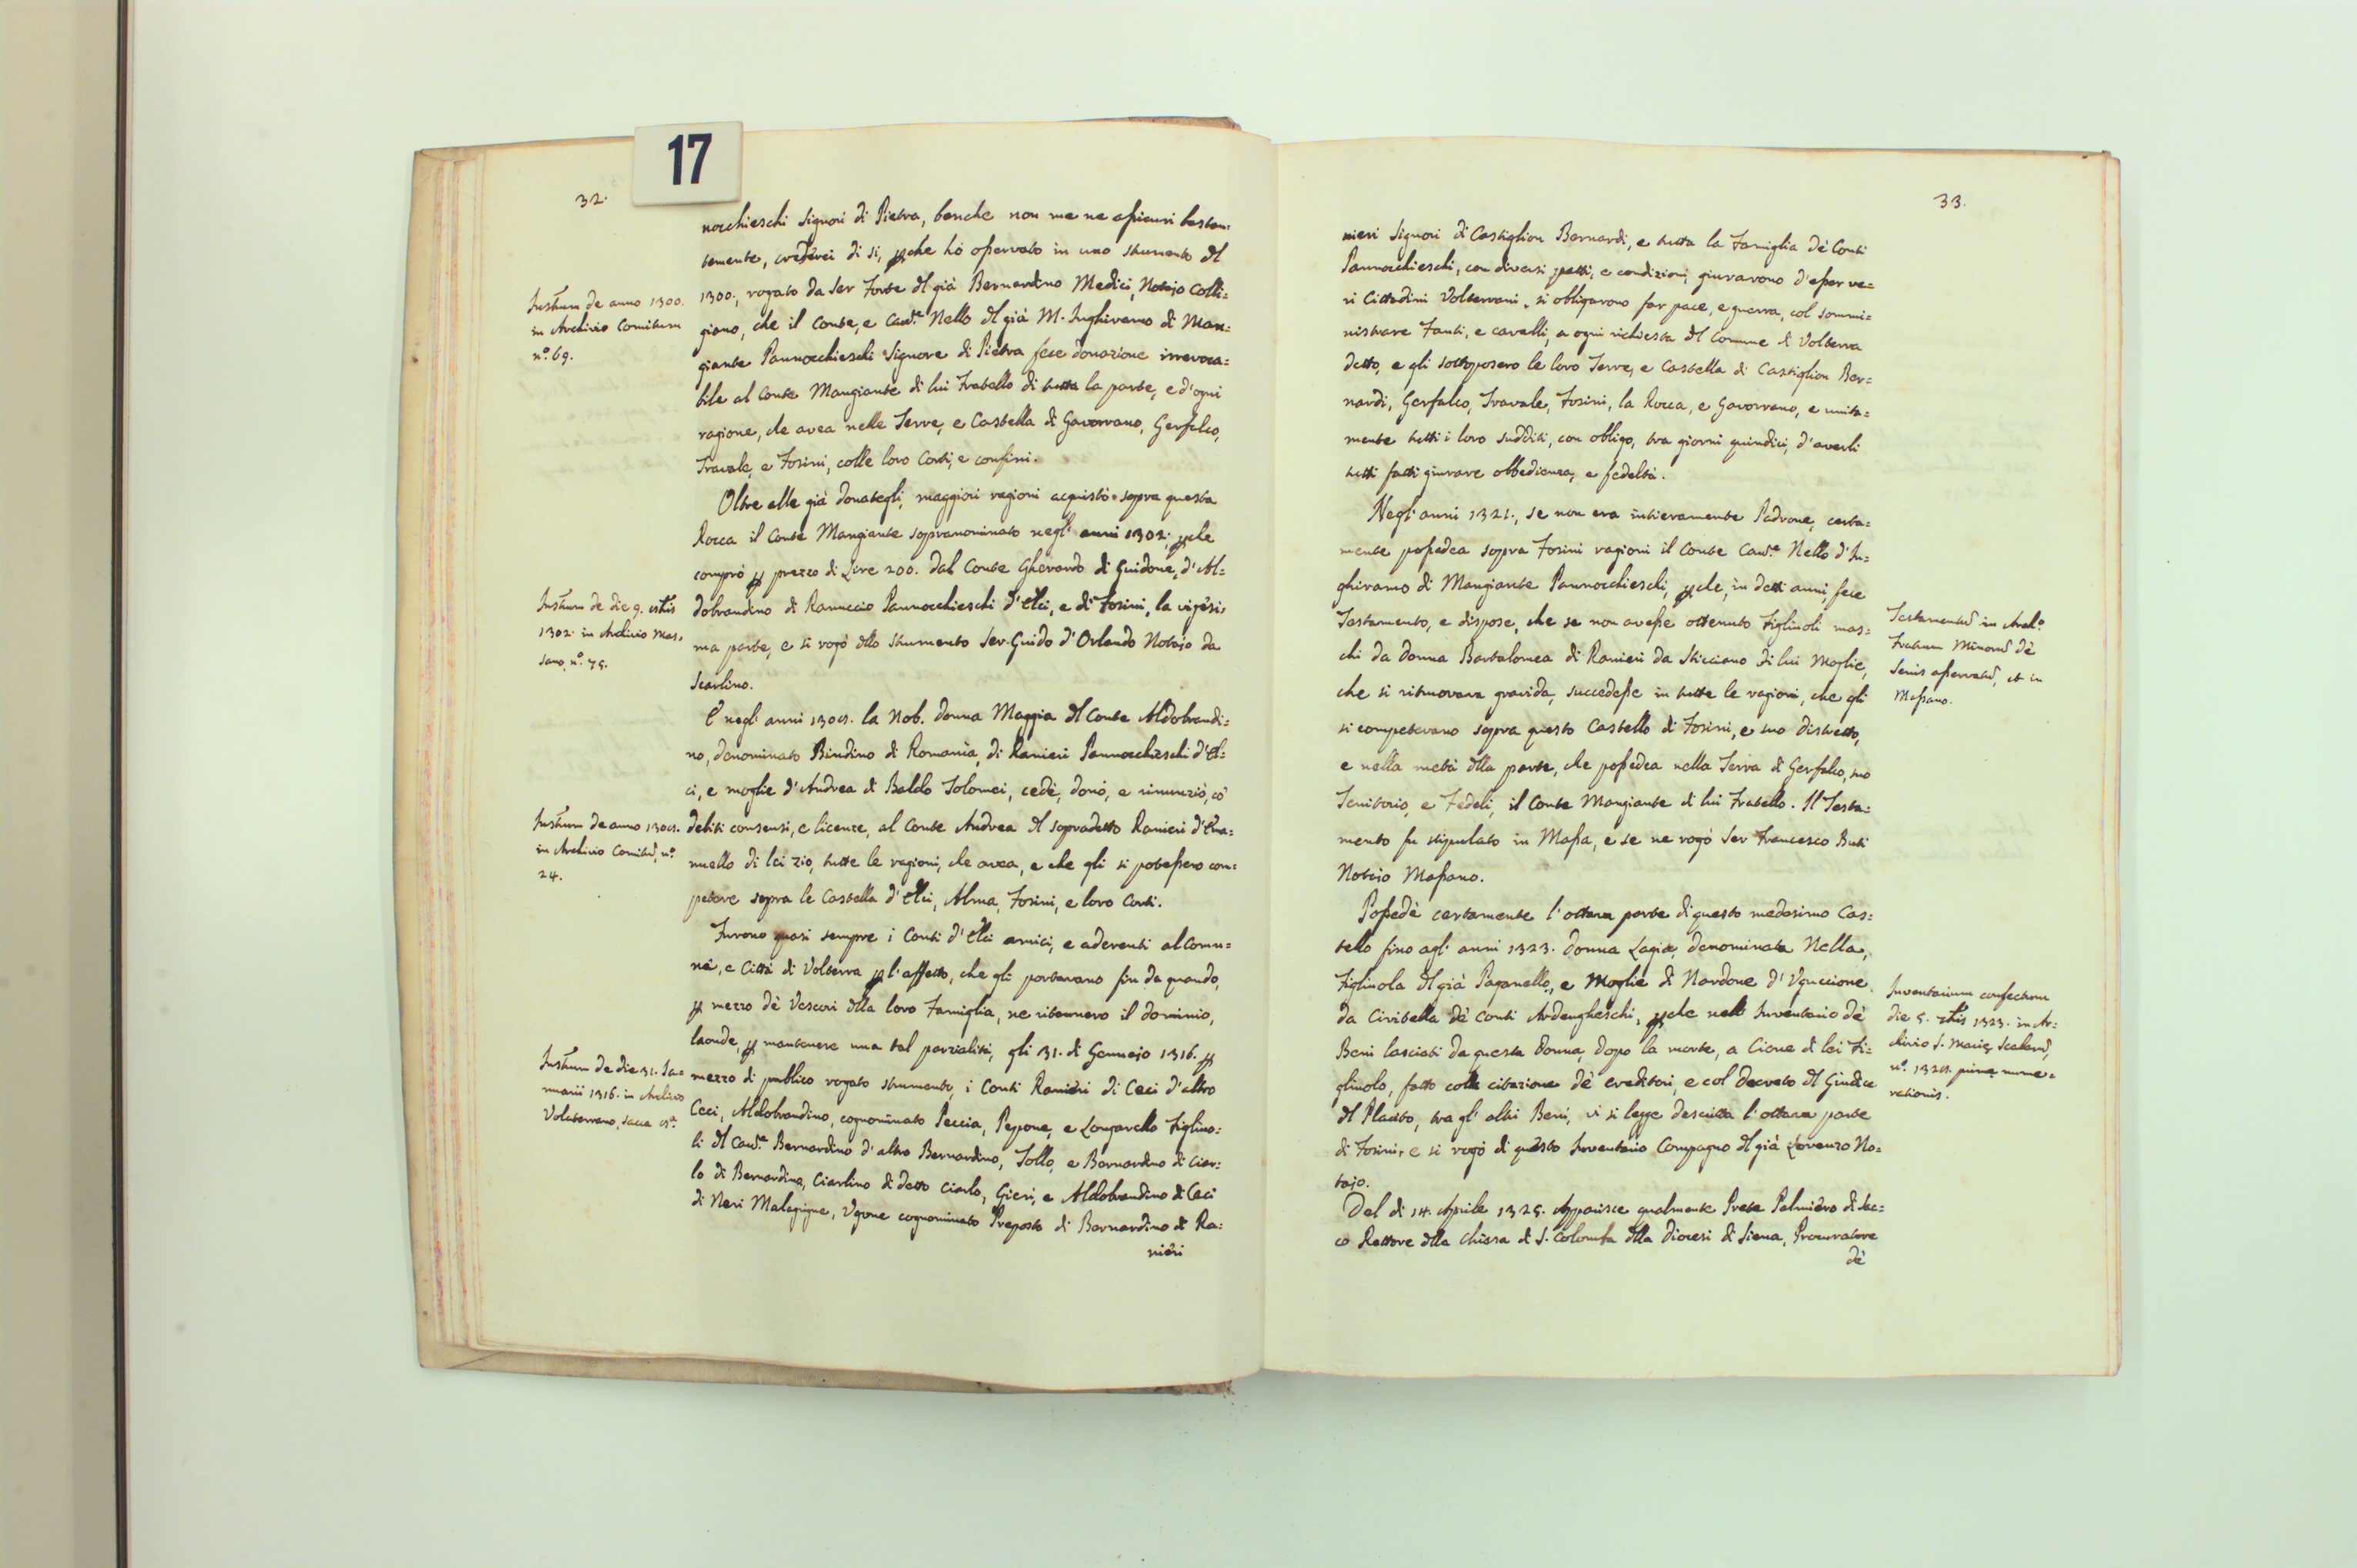 17
32.
nocchieschi Signori di Pietra, benche non me ne assicuri bastan=
temente, crederei di si, pche hò osservato in uno strumento dl
1300., rogato da Ser Forte dl già Bernardino Medici, Notajo Colli=
giano, che il Conte, e Cav.e Nello dl già M. Inghiramo di Man=
giante Pannocchieschi Signore di Pietra fece donazione irrevoca=
bile al Conte Mangiante di lui Fratello di tutta la parte, e d'ogni
ragione, che avea nelle Terre, e Castella di Gavorrano, Gerfalco,
Travale, e Fosini, colle loro Corti, e confini.
Instrum de anno 1300.
in Archivio Comitum
n.o 69.
Oltre alle già donategli, maggiori ragioni acquistò sopra questa
Rocca il Conte Mangiante sopranominato negl' anni 1302. pche
comprò p prezzo di Lire 200. dal Conte Gherardo di Guidone, d'Al=
dobrandino di Ranuccio Pannocchieschi d'Elci, e di Fosini, la vigesi=
ma parte, e si rogò dllo strumento Ser Guido d'Orlando Notajo da
Scarlino.
Instrum de die 9.
1302. in Archivio Mas=
sano, n.o 75.
E negl' anni la Nob. Donna Maggia dl Conte Aldobrandi=
no, denominato Bindino di Romania, di Ranieri Pannocchieschi d'El=
ci, e moglie d'Andrea di Baldo Tolomei, cedè, donò, e rinunziò, cò
debiti consensi, e licenze, al Conte Andrea dl sopradetto Ranieri
nuello di lei zio, tutte le ragioni, che avea, e che gli si potessero com=
petere sopra le Castella d'Elci, Alma, Fosini, e loro Corti.
Instrum de anno
in Archivio Comitū, n.o
24.
Furono quasi sempre i Conti d'Elci amici, e aderenti al Comu=
ne, e Città di Volterra p l'affetto, che gli portavano fin da quando,
p mezzo dè Vescovi dlla loro Famiglia, ne ritennero il dominio,
laonde, p mantenere una tal parzialità, gli 31. di Gennajo 1316. p
mezzo di publico rogato strumento, i Conti Ranieri di Ceci d'altro
Ceci, Aldobrandino, cognominato Peccia, Pepone, e Longarello Figliuo=
li dl Cav.e Bernardino d'altro Bernardino, Tollo, e Bernardino di Ciar=
lo di Bernardino, Ciarlino di detto Ciarlo, Gieri, e Aldobrandino di Ceci
di Neri Malapigne, Ugone cognominato Preposto di Bernardino di Ra=
nieri
Instrum de die 31. Ja=
nuarii 1316. in Archivio
Volaterrano, sacca
33.
nieri Signori di Castiglion Bernardi, e tutta la Famiglia dè Conti
Pannocchieschi, con diversi patti, e condizioni, giurarono d'esser ve=
ri Cittadini Volterrani, si obligarono far pace, e guerra, col sommi=
nistrare Fanti, e cavalli, a ogni richiesta dl Comune di Volterra
detto, e gli sottoposero le loro Terre, e Castella di Castiglion Ber=
nardi, Gerfalco, Travale, Fosini, la Rocca, e Gavorrano, e unita=
mente tutti i loro sudditi, con obligo, tra giorni quindici, d'averli
tutti fatti giurare obbedienza, e fedeltà.
Negl' anni 1321., se non era intieramente Padrone, certa=
mente possedea sopra Fosini ragioni il Conte Cav.e Nello d'In=
ghiramo di Mangiante Pannocchieschi, pche, in detti anni, fece
Testamento, e dispose, che se non avesse ottenuto Figliuoli mas=
chi da Donna Bartalomea di Ranieri da Sticciano di lui Moglie,
che si ritrovava gravida, succedesse in tutte le ragioni, che gli
si competevano sopra questo Castello di Fosini, e suo distretto,
e nella metà dlla parte, che possedea nella Terra di Gerfalco, suo
Territorio, e Fedeli, il Conte Mangiante di lui Fratello. Il Testa=
mento fu stipulato in Massa, e se ne rogò Ser Francesco Buti
Notajo Massano.
Testamentū in Arch.o
Fratrum Minorū de
Senis asservatū, et in
Massano.
Possedè certamente l'ottava parte di questo medesimo Cas=
tello fino agl' anni 1323. Donna Lagia, denominata Nella,
Figliuola dl già Paganello, e Moglie di Nardone d'Uguccione
da Civitella dè Conti Ardengheschi, pche nell' Inventario dè
Beni lasciati da questa Donna, dopo la morte, a Cione di lei Fi=
gliuolo, fatto colla citazione dè creditori, e col decreto dl Giudice
dl Placito, tra gl' altri Beni, vi si legge descritta l'ottava parte
di Fosini, e si rogò di questo Inventario Compagno dl già Lorenzo No=
tajo.
Inventarium confectum
die 5. 1323. in Ar=
chivio S. Marię Scalarū,
n.o primę nume=
rationis.
Del di 14. Aprile 1325. Apparisce qualmente Prete Palmiero di Sac=
co Rettore dlla Chiesa di S. Colomba dlla Diocesi di Siena, Procuratore
dè